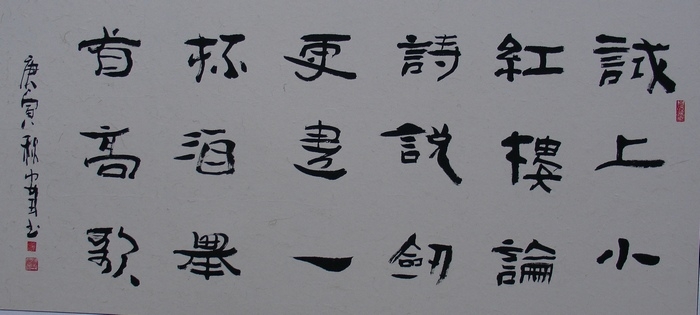 試上小
紅樓論
詩說劍
更盡一
杯酒舉
首高歌
庚寅秋